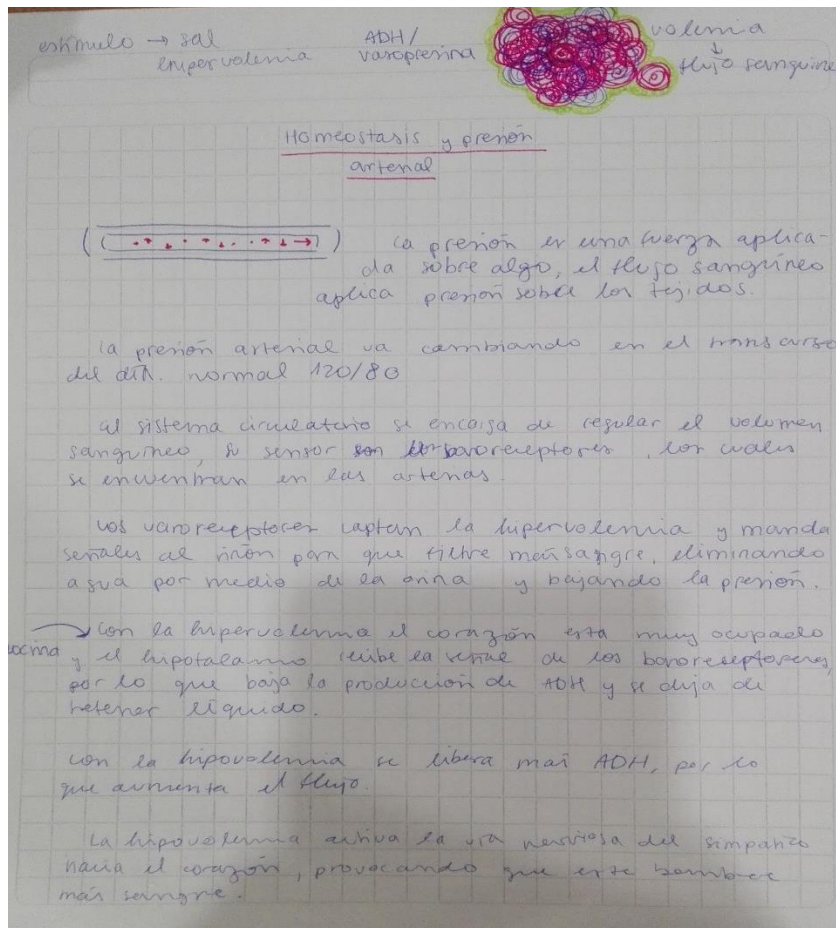 estimulo → sal
hipervolemia
ADH/
vasopresina
volemia
↓
flujo sanguine
Homeostasis y presión
arterial
La presión es una fuerza aplica-
da sobre algo, el flujo sanguíneo
aplica presión sobre los tejidos.
la presión arterial va cambiando en el transcurso
del día. normal 120/80
el sistema circulatorio se encarga de regular el volumen
sanguíneo, su sensor son baroreceptores, los cuales
se encuentran en las arterias.
Los varoreceptores captan la hipervolemia y manda
señales al riñón para que filtre más sangre, eliminando
agua por medio de la orina y bajando la presión.
Con la hipervolemia el corazón esta muy ocupado
y el hipotalamo recibe la señal de los baroreceptores,
por lo que baja la producción de ADH y se deja de
retener líquido.
con la hipovolemia se libera más ADH, por lo
que aumenta el flujo.
La hipovolemia activa la vía nerviosa del simpatico
hacia el corazón, provocando que este bombee
más sangre.